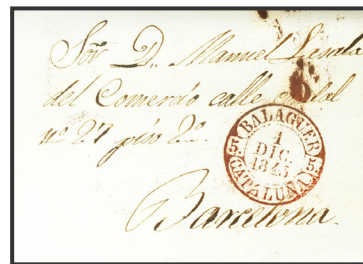 Sor D. Manuel Lasala
del Comercio calle
nº 27 piso 2º
BALAGUER
1
DIC.
1845
5 5
CATALUÑA
Barcelona.